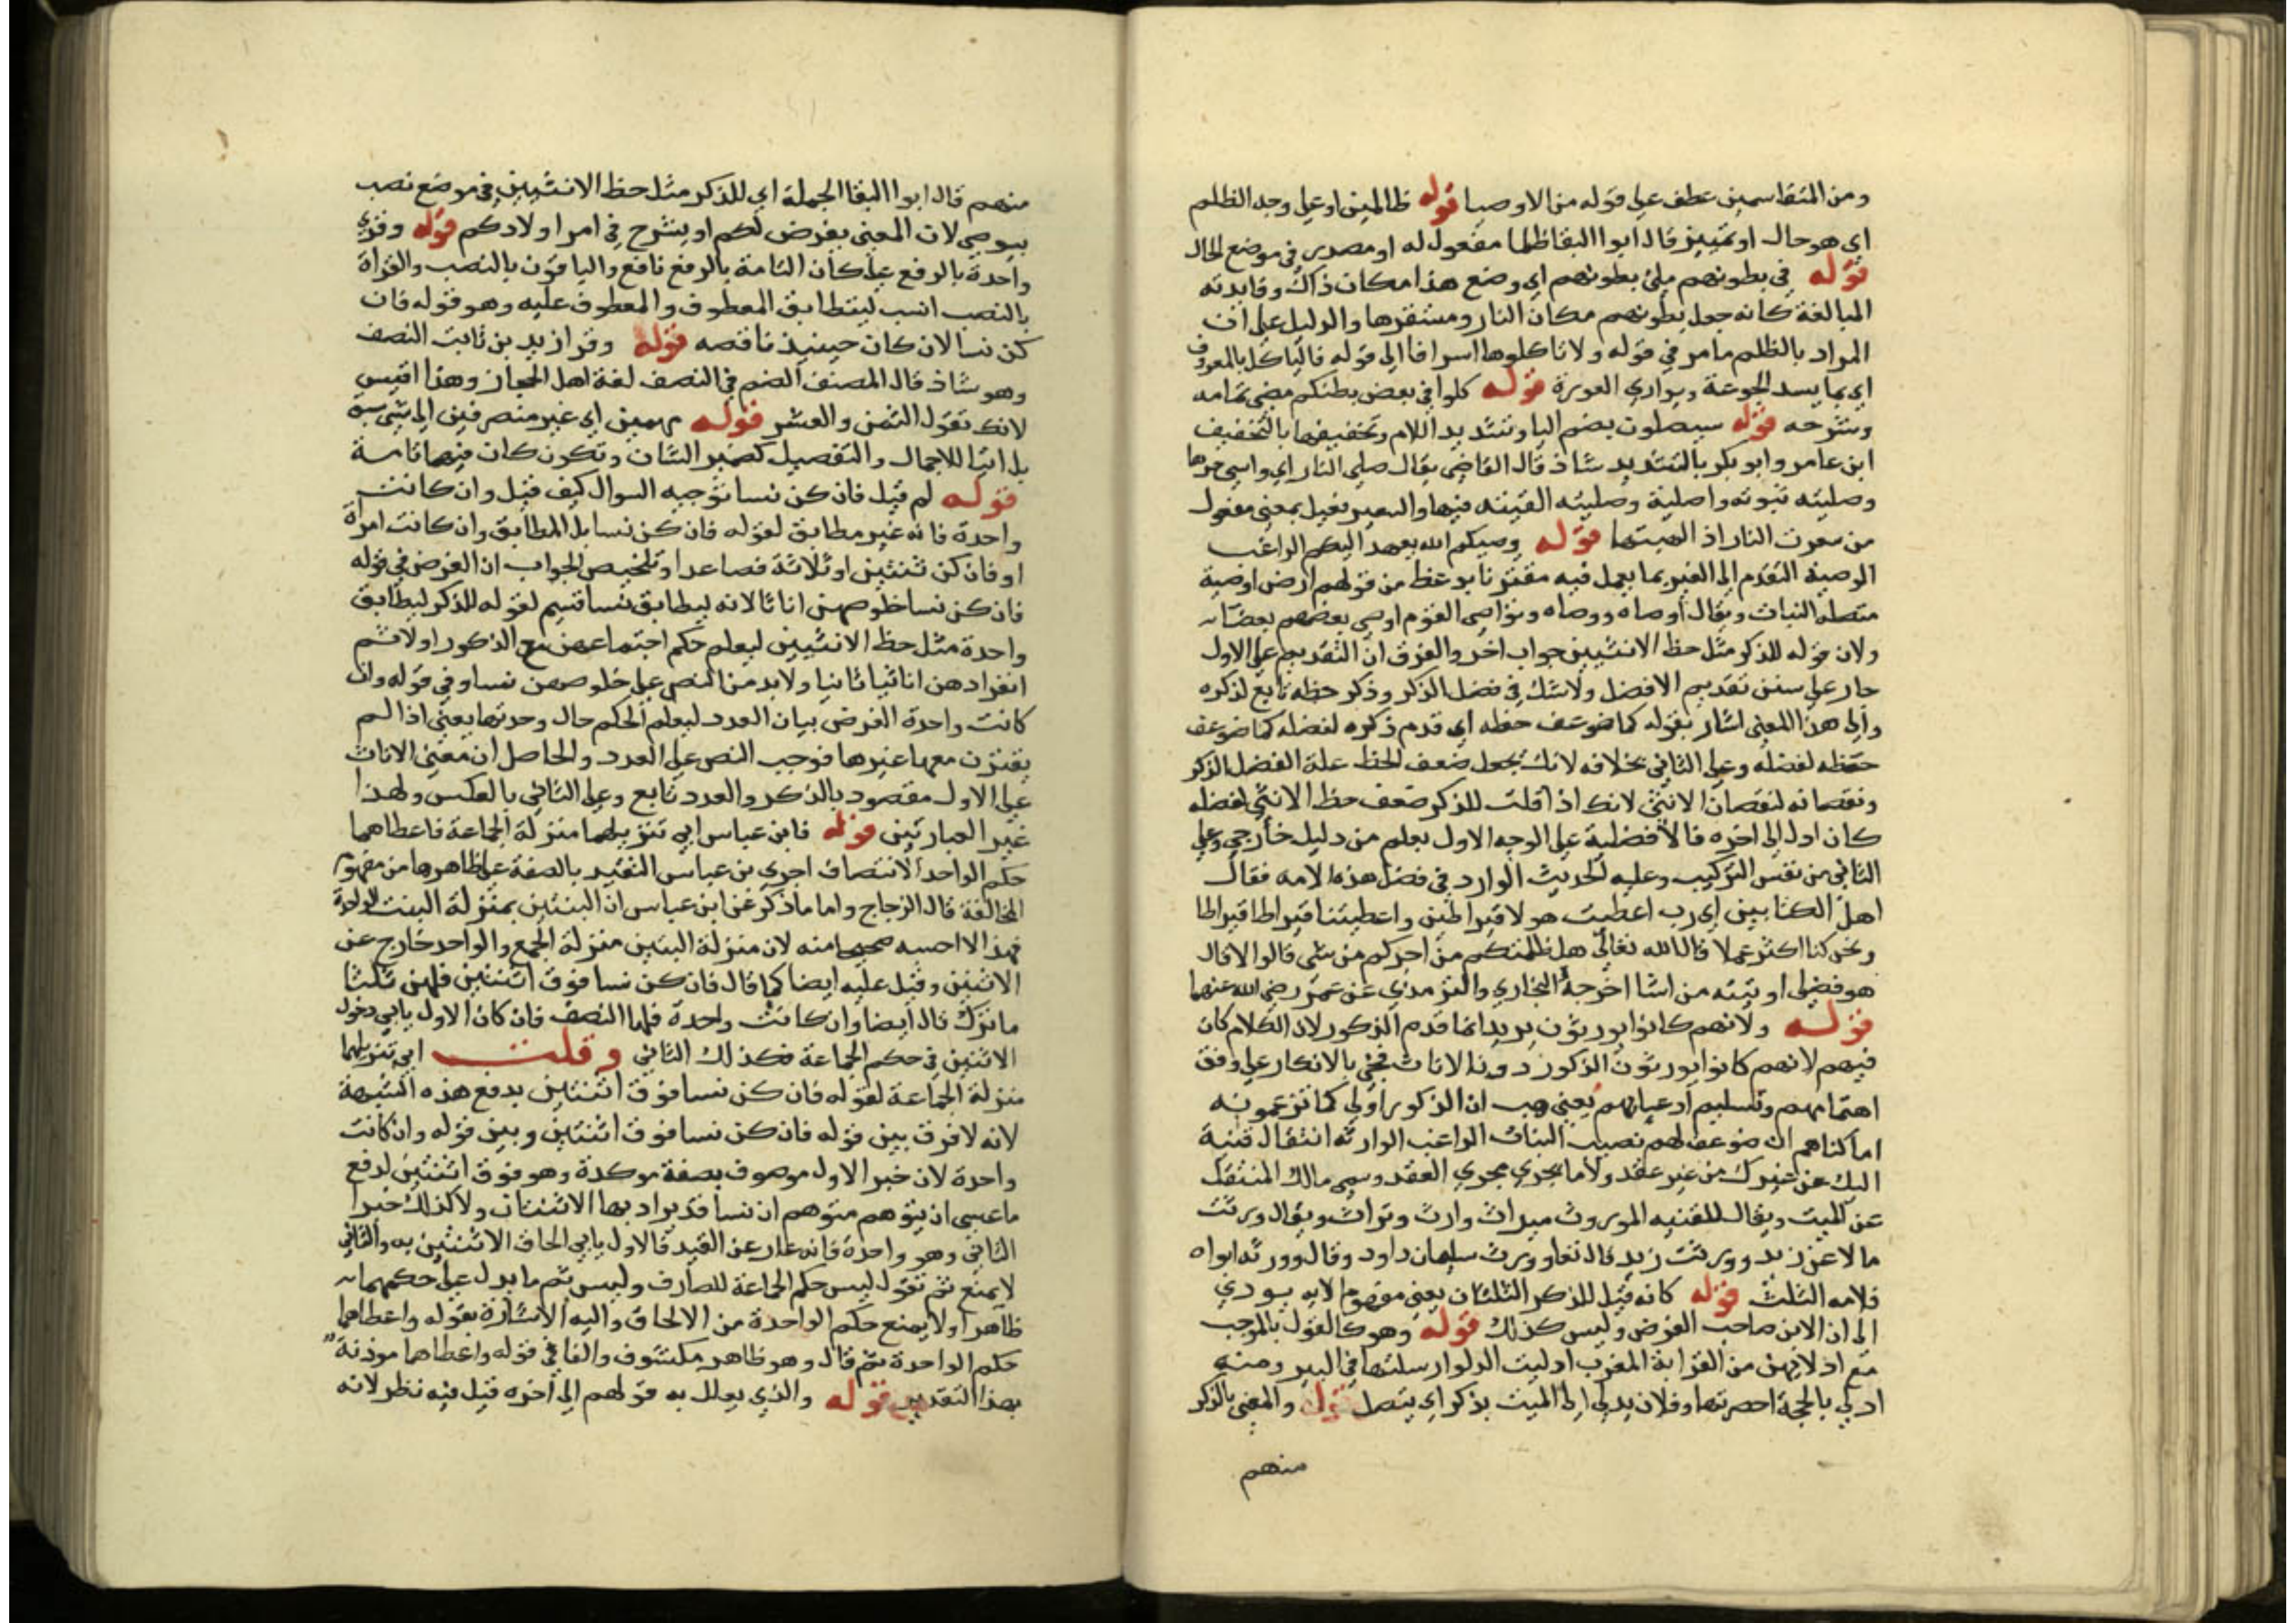 ومن المتقاسمين عطف علي قوله من الاوصيا قوله ظالمين او علي وجه الظلم
اي هو حال او تمييز قال ابوا البقا ظلما مفعول له او مصدر في موضع الحال
قوله في بطونهم ملئ بطونهم اي وضع هذا مكان ذاك وفايدته
المبالغة كانه جعل بطونهم مكان النار ومستقرها والدليل علي ان
المراد بالظلم ما مر في قوله ولا تاكلوها اسرافا الي قوله فالياكل بالمعروف
اي بما يسد الجوعة ويواري العورة قوله كلوا في بعض بطنكم مضي تمامه
وشرحه قوله سيصلون بضم اليا وتشديد اللام وتخفيفها بالتخفيف
ابن عامر وابو بكر بالتشديد شاذ قال القاضي يقال صلي النار اي قاسي حرها
وصليته شويته واصليته وصليته القيته فيها والسعير فعيل بمعني مفعول
من سعرت النار اذا الهبتها قوله وصيكم الله يعهد اليكم الراغب
الوصية التقدم الي الغير بما يعمل فيه مقترنا بوعظ من قولهم ارض اوصية
متصلة النبات ويقال اوصاه ووصاه وتواصي القوم اوصي بعضهم بعضا
ولان قوله للذكر مثل حظ الانثيين جواب اخر والفرق ان التقديم علي الاول
جار علي سنن تقديم الافضل ولا شك في فضل الذكر وذكر حظه تابع لذكره
والي هذا المعني اشار بقوله كما ضوعف حظه اي قدم ذكره لفضله كما ضوعف
حظه لفضله وعلي الثاني بخلافه لانك تجعل ضعف الحظ علة الفضل الذكر
ونقصانه لنقصان الانثي لانك اذا قلت للذكر ضعف حظ الانثي لفضله
كان ادل الي اخره فالافضلية علي الوجه الاول يعلم من دليل خارجي وعلي
الثاني من نفس التركيب وعليه الحديث الوارد في فضل هذه الامه فقال
اهل الكتابين اي رب اعطيت هولا قيراطين واعطيتنا قيراطا قيراطا
ونحن كنا اكثر عملا قال الله تعالي هل ظلمتكم من اجركم من شي قالوا لا قال
هو فضلي اوتيه من اشا اخرجه البخاري والترمذي عن عمر رضي الله عنهما
قوله ولانهم كانوا يورثون يريد انما قدم الذكور لان الكلام كان
فيهم لانهم كانوا يورثون الذكور دون الاناث فجي بالانكار علي وفق
اهتمامهم وتسليم ادعيانهم يعني هب ان الذكور اولي كما تزعمونه
اما كفاهم ان ضوعف لهم نصيب البنات الراغب الوارثه انتقال قنية
اليك عن غيرك من غير عقد ولا ما يجري مجري العقد وسمي مالك المنتقل
عن الميت ويقال للقنيه الموروث ميراث وارث وتراث ويقال ورثت
مالا عن زيد وورثت زيد قال تعا وورث سليمان داود وقال وورثه ابواه
فلامه الثلث قوله كانه قيل للذكر الثلثان يعني مفهوم الايه يودي
الي ان الابن صاحب الفرض وليس كذلك قوله وهو كالقول بالموجب
مع ادلايهن من القرابة المغرب ادليت الدلو ارسلتها في البير ومنه
ادلي بالحجة احضرتها وفلان يدلي الي الميت بذكر اي يتصل قوله والمعني بالذكر
منهم
منهم قال ابوا البقا الجملة اي للذكر مثل حظ الانثيين في موضع نصب
بيوصي لان المعني يفرض لكم او يشرح في امر اولادكم قوله وقري
واحدة بالرفع علي كان التامة بالرفع نافع والباقون بالنصب والقراة
بالنصب انسب ليتطابق المعطوف والمعطوف عليه وهو قوله فان
كن نسا لان كان حينيذ ناقصه قوله وقرا زيد بن ثابت النصف
وهو شاذ قال المصنف الضم في النصف لغة اهل الحجاز وهذا اقيس
لانك تقول الثمن والعشر قوله مهمين اي غير منصرفين الي شي
بل اتيا للاجمال والتفصيل كضمير الشان وتكون كان فيهما تامة
قوله لم قيل فان كن نسا توجيه السوال كيف قيل وان كانت
واحدة فانه غير مطابق لقوله فان كن نسا بل المطابق وان كانت امراة
او فان كن ثنتين او ثلاثة فصاعدا وتلخيص الجواب ان الغرض في قوله
فان كن نسا خلوصهن اناثا لانه ليطابق نسا قسيم لقوله للذكر ليطابق
واحدة مثل حظ الانثيين ليعلم حكم اجتماعهن مع الذكور اولا ثم
انفرادهن اناثيا ثانيا ولابد من النص علي خلوصهن نسا وفي قوله وان
كانت واحدة الغرض بيان العدد ليعلم الحكم حال وحدتها يعني اذا لم
يقترن معها غيرها فوجب النص علي العدد والحاصل ان معني الاناث
علي الاول مقصود بالذكر والعدد تابع وعلي الثاني بالعكس ولهذا
غير العبارتين قوله فابن عباس ابي تنزيلهما منزلة الجماعة فاعطاهما
حكم الواحد الانتصاف اجري بن عباس التقييد بالصفة علي ظاهرها من مفهوم
المخالفة قال الزجاج واما ما ذكر عن ابن عباس ان البنتين بمنزلة البنت الواحدة
فهذا لا احسبه صحيحا منه لان منزلة البنتين منزلة الجمع والواحد خارج عن
الاثنين وقيل عليه ايضا كما قال فان كن نسا فوق اثنتين فلهن ثلثا
ما ترك قال ايضا وان كانت واحدة فلها النصف فان كان الاول يابي دخول
الاثنين في حكم الجماعة فكذلك الثاني وقلت ابي تنزيلهما
منزلة الجماعة لقوله فان كن نسا فوق اثنتين يدفع هذه الشبهة
لانه لا فرق بين قوله فان كن نسا فوق اثنتين وبين قوله وان كانت
واحدة لان خبر الاول موصوف بصفة موكدة وهو فوق اثنتين لدفع
ما عسي ان يتوهم متوهم ان نسا قد يراد بها الاثنتان ولا كذلك خبر
الثاني وهو واحدة فانه عار عن القيد فالاول يابي الحاق الاثنتين به والثاني
لا يمنع ثم تقول ليس حكم الجماعة للصارف وليس ثم ما يدل علي حكمهما
ظاهرا ولا يمنع حكم الواحدة من الالحاق واليه الاشارة بقوله واعطاهما
حكم الواحدة ثم قال وهو ظاهر مكشوف والفا في قوله واعطاهما موذنة
بهذا التقدير قوله والذي يعلل به قولهم الي اخره قيل فيه نظر لانه